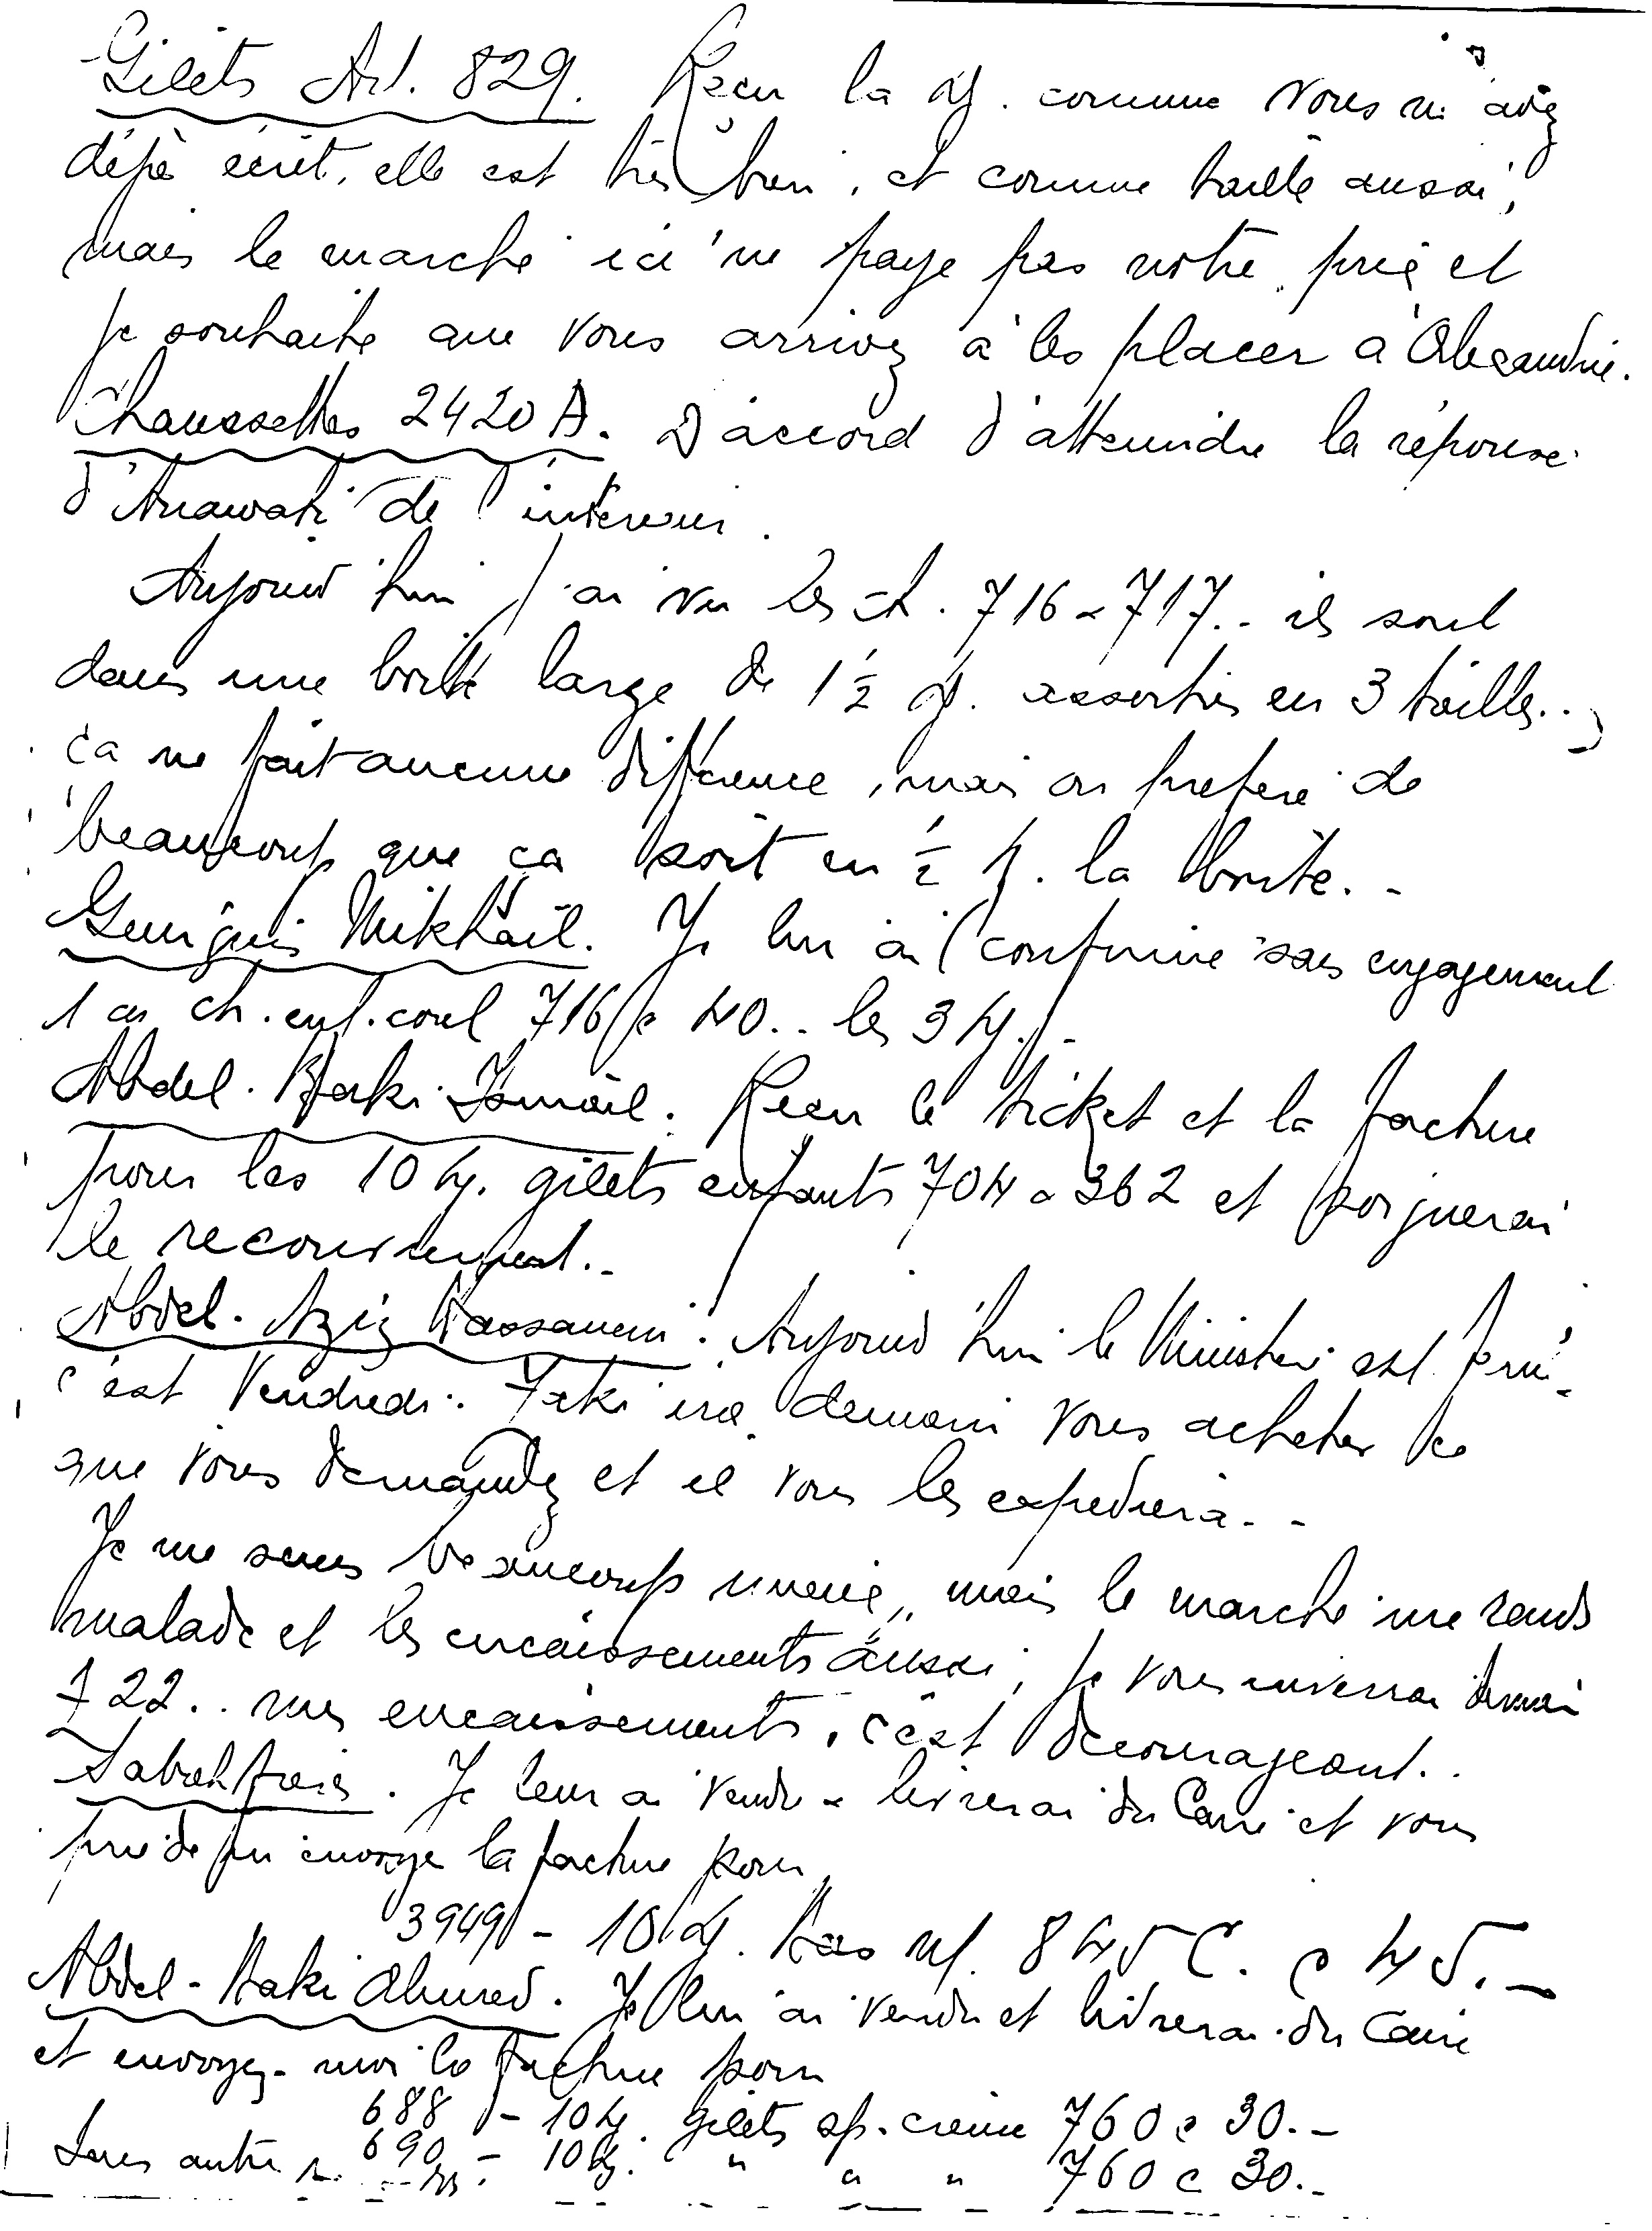 Gilets Art. 829. Reçu la dz. comme vous m'avez
déjà écrit, elle est très bien, et comme taille aussi,
mais le marché ici ne paye pas notre prix et
je souhaite que vous arrivez à les placer à Alexandrie.
Chaussettes 2420 A. D'accord d'attendre la réponse
d'Anawati de l'interieur.
Aujourd'hui j'ai vu les ch. 716 - 717.. ils sont
dans une boite large de 1 ½ dz. assorties en 3 tailles..
ça ne fait aucune différence, mais on prefere de
beaucoup que ça soit en ½ dz. la boite. -
Guirguis Mikhaïl. Je lui ai confirmé sans engagement
1 cs ch. enf. coul 716 à 40.. les 3 dz. -
Abdel. Baki Ismaïl. Reçu le ticket et la facture
pour les 10 dz. gilets enfants 704 a 362 et soignerai
le recouvrement. -
Abdel. Aziz Hassanein. Aujourd'hui le Ministere est fermé
c'est Vendredi. Zaki ira demain vous acheter ce
que vous demandez et il vous les expediera. -
Je me sens beaucoup mieux, mais le marché me rends
malade et les encaissements aussi, je vous enverrai demain
£ 22.. mes encaissements, c'est décourageant..
Sabah frères. Je leur ai vendu - livrerai du Caire et vous
prie de m'envoyer la facture pour
3949 - 10 dz. bas 845 C. à 45. -
Abdel - Baki Ahmed. Je lui ai vendu et livrerai du Caire
et envoyez - moi la facture pour
688 - 10 dz. gilets creme 760 à 30. -
690 - 10 dz. " " " 760 à 30. -
Sans autre